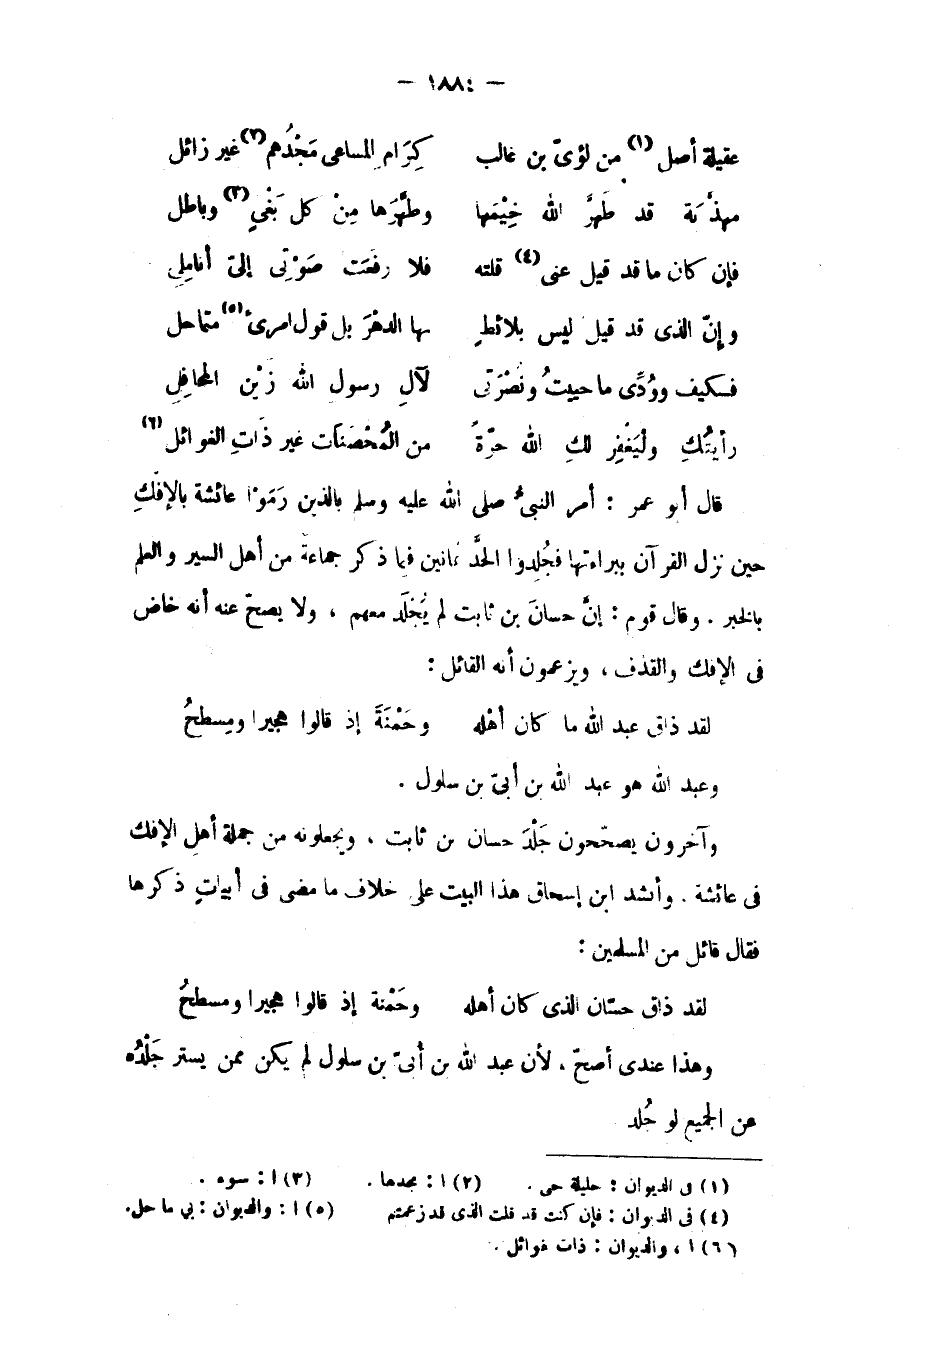 — ١٨٨٤ —
عقيلة أصل (١) من لؤىّ بن غالب كِرَامِ المساعى مَجْدُهم (٢) غير زائل
مهذّبة قد طَهرَّ الله خِيْمَها وطهَّرَها مِنْ كل بَغْيٍ (٣) وباطل
فإن كان ما قد قيل عنى (٤) قلته فلا رفَعَت صَوْتى إلىّ أناملِى
وإنّ الذى قد قيل ليس بلائطٍ بها الدهْرَ بل قول امرئ (٥) متماحل
فكيف ووُدِّى ما حييتُ ونُصْرَتى لآلِ رسول الله زَيْن المحافلِ
رأيتُكِ ولْيَغْفِر لكِ الله حرّةً من المُحْصَنَات غير ذَاتِ الغوائل (٦)
قال أبو عمر : أمر النبىُّ صلى الله عليه وسلم بالذين رَمَوْا عائشة بالإفْكِ
حين نزل القرآن ببراءتها فجُلِدوا الحَدَّ ثمانين فيما ذكر جماعةٌ من أهل السير والعلم
بالخبر . وقال قوم : إنَّ حسانَ بن ثابت لم يُجْلَد معهم ، ولا يصحّ عنه أنه خاض
فى الإفك والقذف ، ويزعمون أنه القائل :
لقد ذاق عبد الله ما كان أهْله وحَمْنَةَ إذ قالوا هجيرا ومِسطحُ
وعبد الله هو عبد الله بن أبىّ بن سلول .
وآخرون يصحّحون جَلْدَ حسان بن ثابت ، ويجعلونه من جملة أهلِ الإفك
فى عائشة . وأنشد ابن إسحاق هذا البيت على خلاف ما مضى فى أبياتٍ ذكرها
فقال قائل من المسلمين :
لقد ذاق حسّان الذى كان أهله وحَمْنة إذ قالوا هجيرا ومسطحُ
وهذا عندى أصحّ ، لأن عبد الله بن أبىّ بن سلول لم يكن ممن يستر جَلْدُه
عن الجميع لو جُلد
(١) فى الديوان : حليلة حى . (٢) ا : مجدها . (٣) ا : سوء .
(٤) فى الديوان : فإن كنت قد قلت الذى قد زعمتم (٥) ا : والديوان : بي ما حل.
(٦) ا ، والديوان : ذات غوائل .